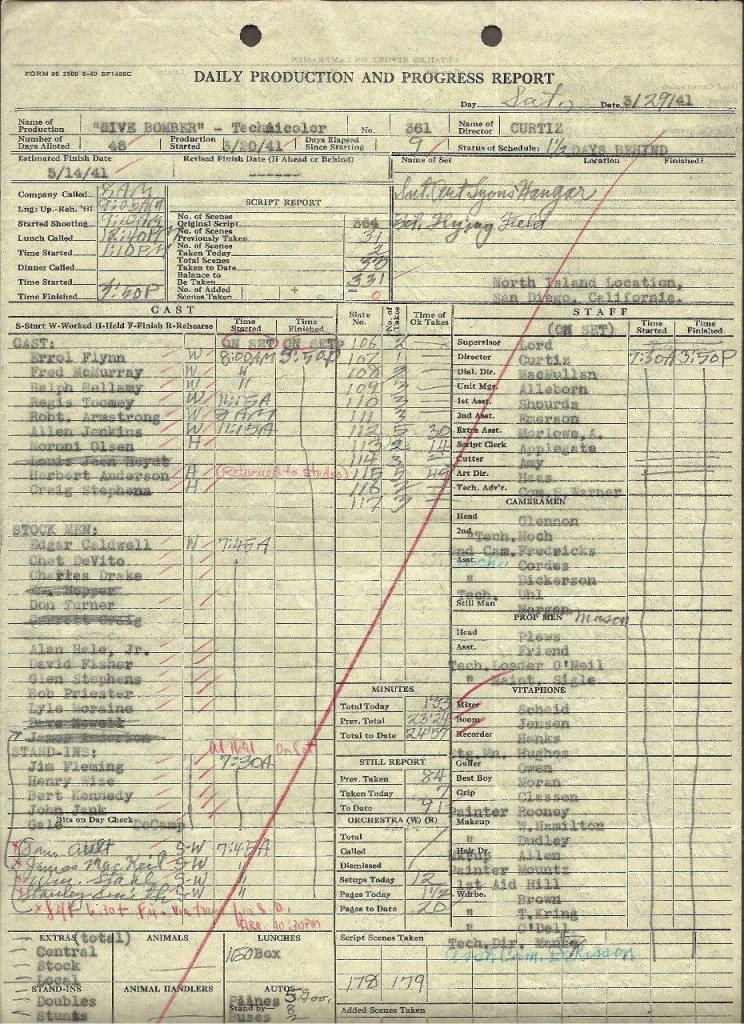 FORM 96 2500 6-40 SF1486C
DAILY PRODUCTION AND PROGRESS REPORT
Day Sat. Date 3/29/41
Name of Production "DIVE BOMBER" - Technicolor No. 361 Name of Director CURTIZ
Number of Days Alloted 48 Production Started 3/20/41 Days Elapsed Since Starting 9 Status of Schedule: 1½ DAYS BEHIND
Estimated Finish Date 5/14/41 Revised Finish Date (If Ahead or Behind) Name of Set Location Finished?
Company Called 8AM
Lng: Up.-Reh. 'til 9:05AM
Started Shooting 9:10AM
Lunch Called 12:40PM
Time Started 1:10PM
Dinner Called
Time Started
Time Finished 3:50P
SCRIPT REPORT
No. of Scenes Original Script 364
No. of Scenes Previously Taken 31
No. of Scenes Taken Today 2
Total Scenes Taken to Date 33
Balance to Be Taken 331
No. of Added Scenes Taken + 0
Int. Art Lyons Hangar
Ext. Flying Field
North Island Location,
San Diego, California.
CAST
S-Start W-Worked H-Held F-Finish R-Rehearse Time Started Time Finished
CAST: ON SET ON SET
Errol Flynn W 8:00AM 3:50P
Fred McMurray W "
Ralph Bellamy W "
Regis Toomey W 11:15A
Robt. Armstrong W 8 AM
Allen Jenkins W 11:15A
Moroni Olsen H
Louis Jean Heydt
Herbert Anderson H (Returned to Studio)
Craig Stephens H
STOCK MEN:
Edgar Caldwell W 7:45A
Chet DeVito
Charles Drake
Hopper
Don Turner
Garrett Craig
Alan Hale, Jr.
David Fisher
Glen Stephens
Rob Priester
Lyle Moraine
Dave Newell
James Anderson
At Hotel On Set
STAND-INS: 7:30A
Jim Fleming
Henry Wise
Bert Kennedy
John Jank
Gale DeCamp
Bits on Day Check
Ault S-W 7:45A
James MacNeil S-W "
Wm. Stahl S-W "
Stanley Smith S-W "
Slate No. No. of Takes Time of Ok Takes
106 2
107 1
108 2
109 3
110 3
111 3
112 5 30
113 2 14
114 3
115 5 49
116
117 3
MINUTES
Total Today 1'33
Prev. Total 23'24
Total to Date 24'57
STILL REPORT
Prev. Taken 84
Taken Today 7
To Date 91
ORCHESTRA (W) (R)
Total
Called
Dismissed
Setups Today 12
Pages Today 1½
Pages to Date 20
STAFF
(ON SET) Time Started Time Finished
Supervisor Lord
Director Curtiz 7:30A 3:50P
Dial. Dir. MacMullan
Unit Mgr. Alleborn
1st Asst. Shourds
2nd Asst. Emerson
Extra Asst. Marlowe, A.
Script Clerk Applegate
Cutter Amy
Art Dir. Haas
Tech. Adv'r. Com. S. Warner
CAMERAMEN
Head Glennon
2nd Tech. Hoch
2nd Cam. Fredricks
Asst. Cordes
" Dickerson
Tech. Uhl
Still Man Morgan
PROP MEN Mason
Head Plews
Asst. Friend
Tech. Loader O'Neil
" Maint. Sigle
VITAPHONE
Mixer Scheid
Boom Jensen
Recorder Hanks
Ltg. Mn. Hughes
Gaffer Owen
Best Boy Moran
Grip Classen
Painter Rooney
Makeup W. Hamilton
" Dudley
Hair Dr. Allen
Painter Mountz
1st Aid Hill
Wdrbe. Brown
" T. Kring
" O'Dell
Tech. Dir.
EXTRAS (total)
Central
Stock
Local
STAND-INS
Doubles
Stunts
ANIMALS
ANIMAL HANDLERS
LUNCHES
160 Box
AUTOS
Planes 5
Stand by—
Buses
Script Scenes Taken
178 179
Added Scenes Taken